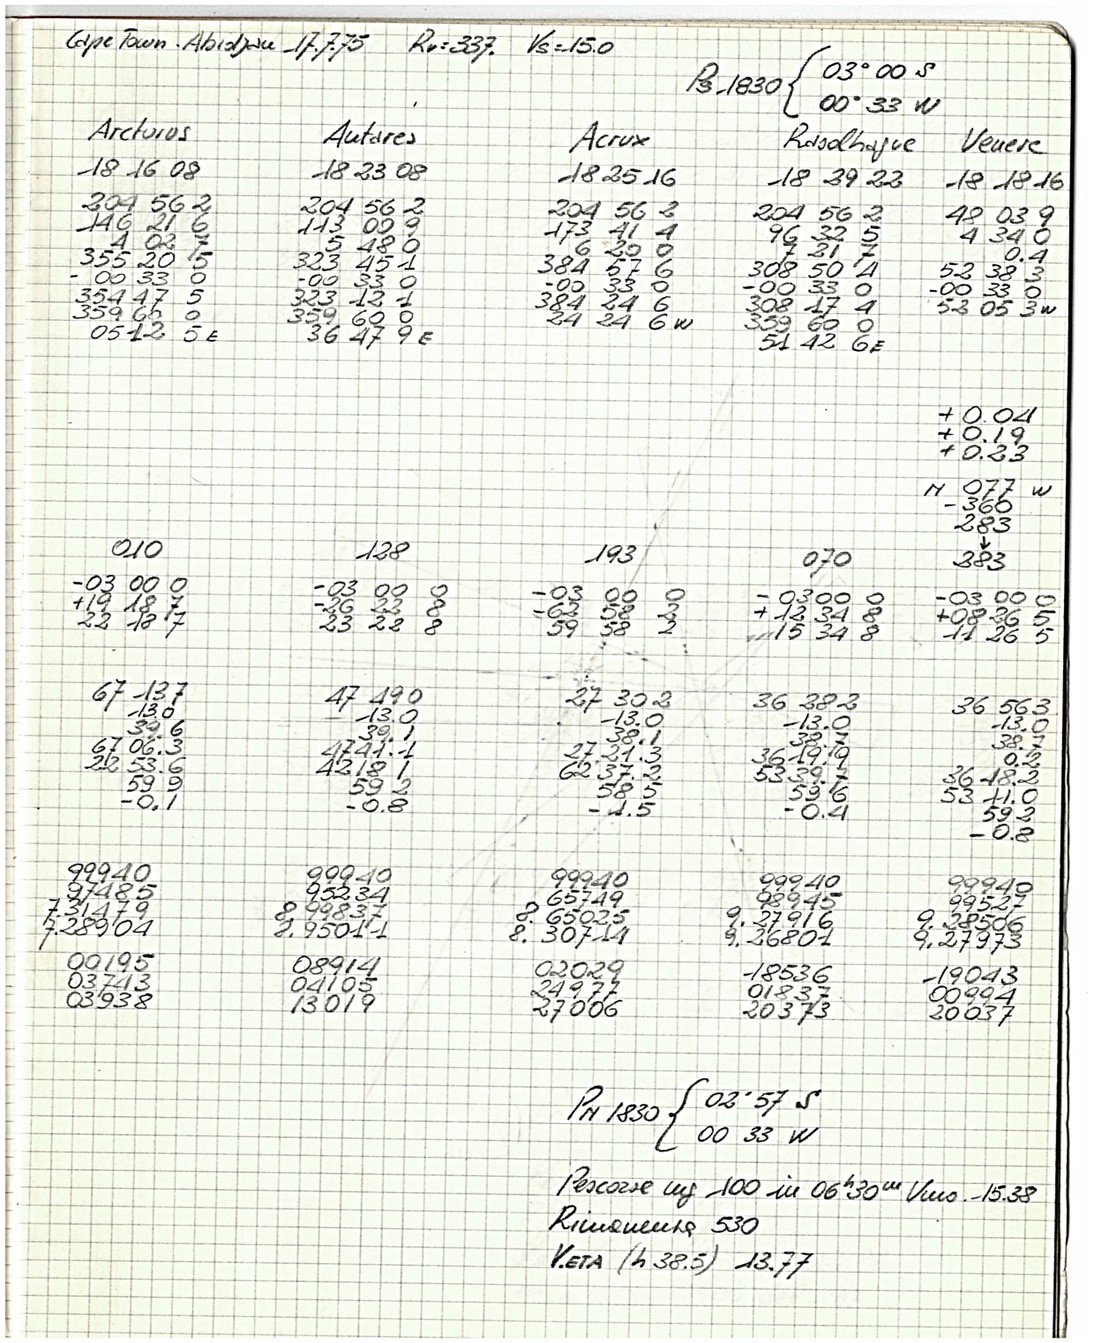 Cape Town - Abidjan 17.7.75 Rv=337. Vs=15.0
Ps 1830 { 03° 00 S
00° 33 W
Arcturus Antares Acrux Rasalhague Venere
18 16 08 18 23 08 18 25 16 18 29 22 18 18 16
204 56 2 204 56 2 204 56 2 204 56 2 48 03 9
146 21 6 113 00 9 173 41 4 96 32 5 4 34 0
4 02 7 5 48 0 6 20 0 7 21 7 0.4
355 20 5 323 45 1 384 57 6 308 50 4 52 38 3
-00 33 0 -00 33 0 -00 33 0 -00 33 0 -00 33 0
354 47 5 323 12 1 384 24 6 308 17 4 52 05 3 W
359 60 0 359 60 0 24 24 6 W 359 60 0
05 12 5 E 36 47 9 E 51 42 6 E
+ 0.04
+ 0.19
+ 0.23
N 077 W
-360
283
↓
010 128 193 070 283
-03 00 0 -03 00 0 -03 00 0 -03 00 0 -03 00 0
+19 18 7 -26 22 8 -62 58 2 +12 34 8 +08 26 5
22 18 7 23 22 8 59 58 2 15 34 8 11 26 5
67 13.7 47 49 0 27 30 2 36 28 2 36 56 3
-13.0 -13.0 -13.0 -13.0 -13.0
39.6 39.1 38.1 38.7 38.7
67 06.3 4741.1 27.21.3 36 19.9 0.2
22 53.6 42 18 1 62 37.2 53 39.7 36 18.2
59 9 59 2 58 5 59 6 53 11.0
-0.1 -0.8 -1.5 -0.4 59 2
-0.8
99940 99940 99940 99940 99940
97485 95234 65749 98945 99527
7.31479 8.99837 8.65025 9.27916 9.28506
7.28904 8.95011 8.30714 9.26801 9.27973
00195 08914 02029 18536 19043
03743 04105 24977 01837 00994
03938 13019 27006 20373 20037
PN 1830 { 02° 57 S
00 33 W
Percorse mg 100 in 06h30m Vmo. 15.38
Rimanenza 530
V.ETA (h 38.5) 13.77